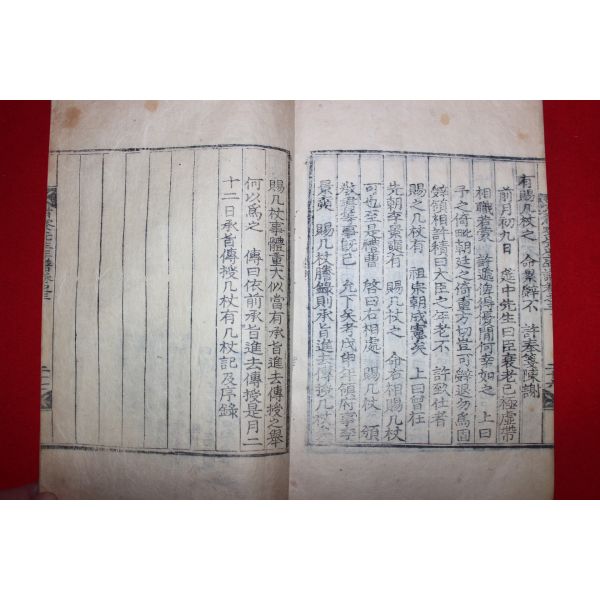 有賜几杖之 命累辭不 許奉箋陳謝
前月初九日 筵中先生曰臣衰老已極虛帶
相職若蒙 許遞俾得優閒何幸如之 上曰
予之倚毗朝廷之倚重方切豈可辭退勿爲固
辭領相許積曰大臣之年老不 許致仕者
賜之几杖有 祖宗朝成憲矣 上曰曾在
先朝李景奭有 賜几杖之 命右相賜几杖
可也至是禮曹 啓曰右相處 賜几杖 頒
敎書等事旣已 允下矣考戊申年領府事李
景奭 賜几杖謄錄則承旨進去傳授几杖
賜几杖事體重大似當有承旨進去傳授之舉
何以爲之 傳曰依前承旨進去傳授是月二
十二日承旨傳授几杖有几杖記及序錄